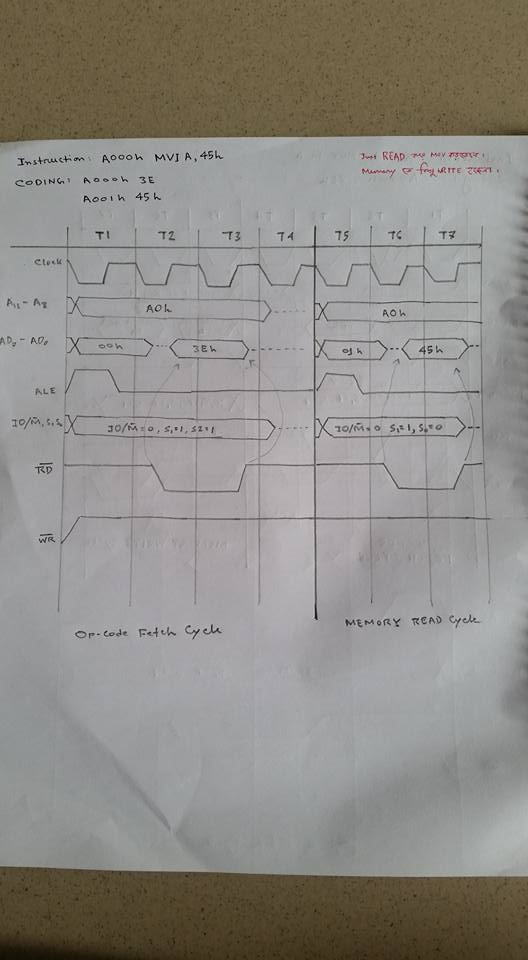 Instruction: A000h MVI A, 45h
CODING: A000h 3E
A001h 45h
Just READ
Memory WRITE
T1 T2 T3 T4 T5 T6 T7
Clock
A15 - A8 A0h A0h
AD7 - AD0 00h 3Eh 01h 45h
ALE
IO/M̅, S1, S0 IO/M̅=0, S1=1, S2=1 IO/M̅=0 S1=1, S0=0
R̅D̅
W̅R̅
Op-code Fetch Cycle MEMORY READ Cycle